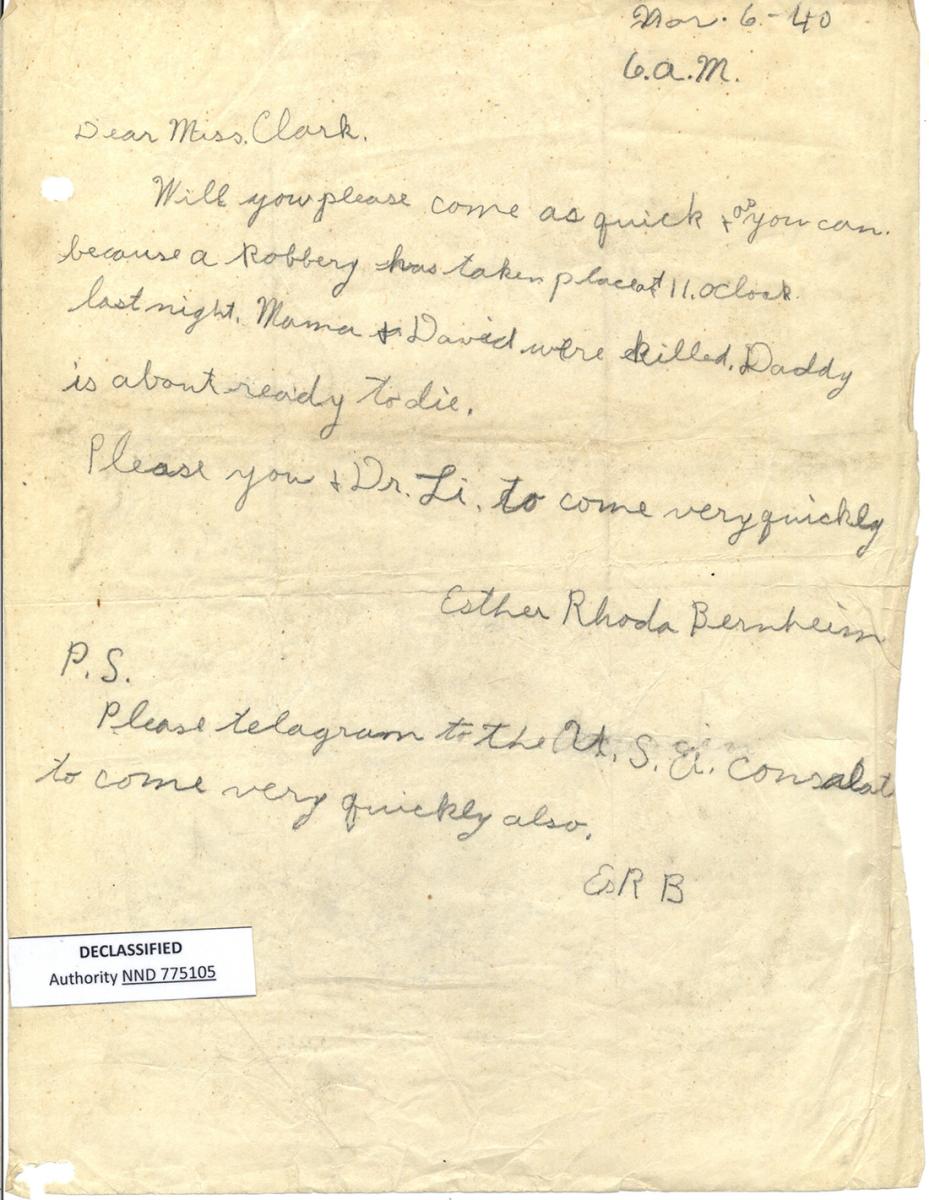 Mar. 6-40
6.a.M.
Dear Miss. Clark.
Will you please come as quick + as you can.
because a Robbery has taken place at 11.oclock
last night. Mama & David were killed. Daddy
is about ready to die.
Please you & Dr. Li. to come very quickly
Esther Rhoda Bernheim
P.S.
Please telagram to the U. S. a. Consalat
to come very quickly also.
EsR B
DECLASSIFIED
Authority NND 775105